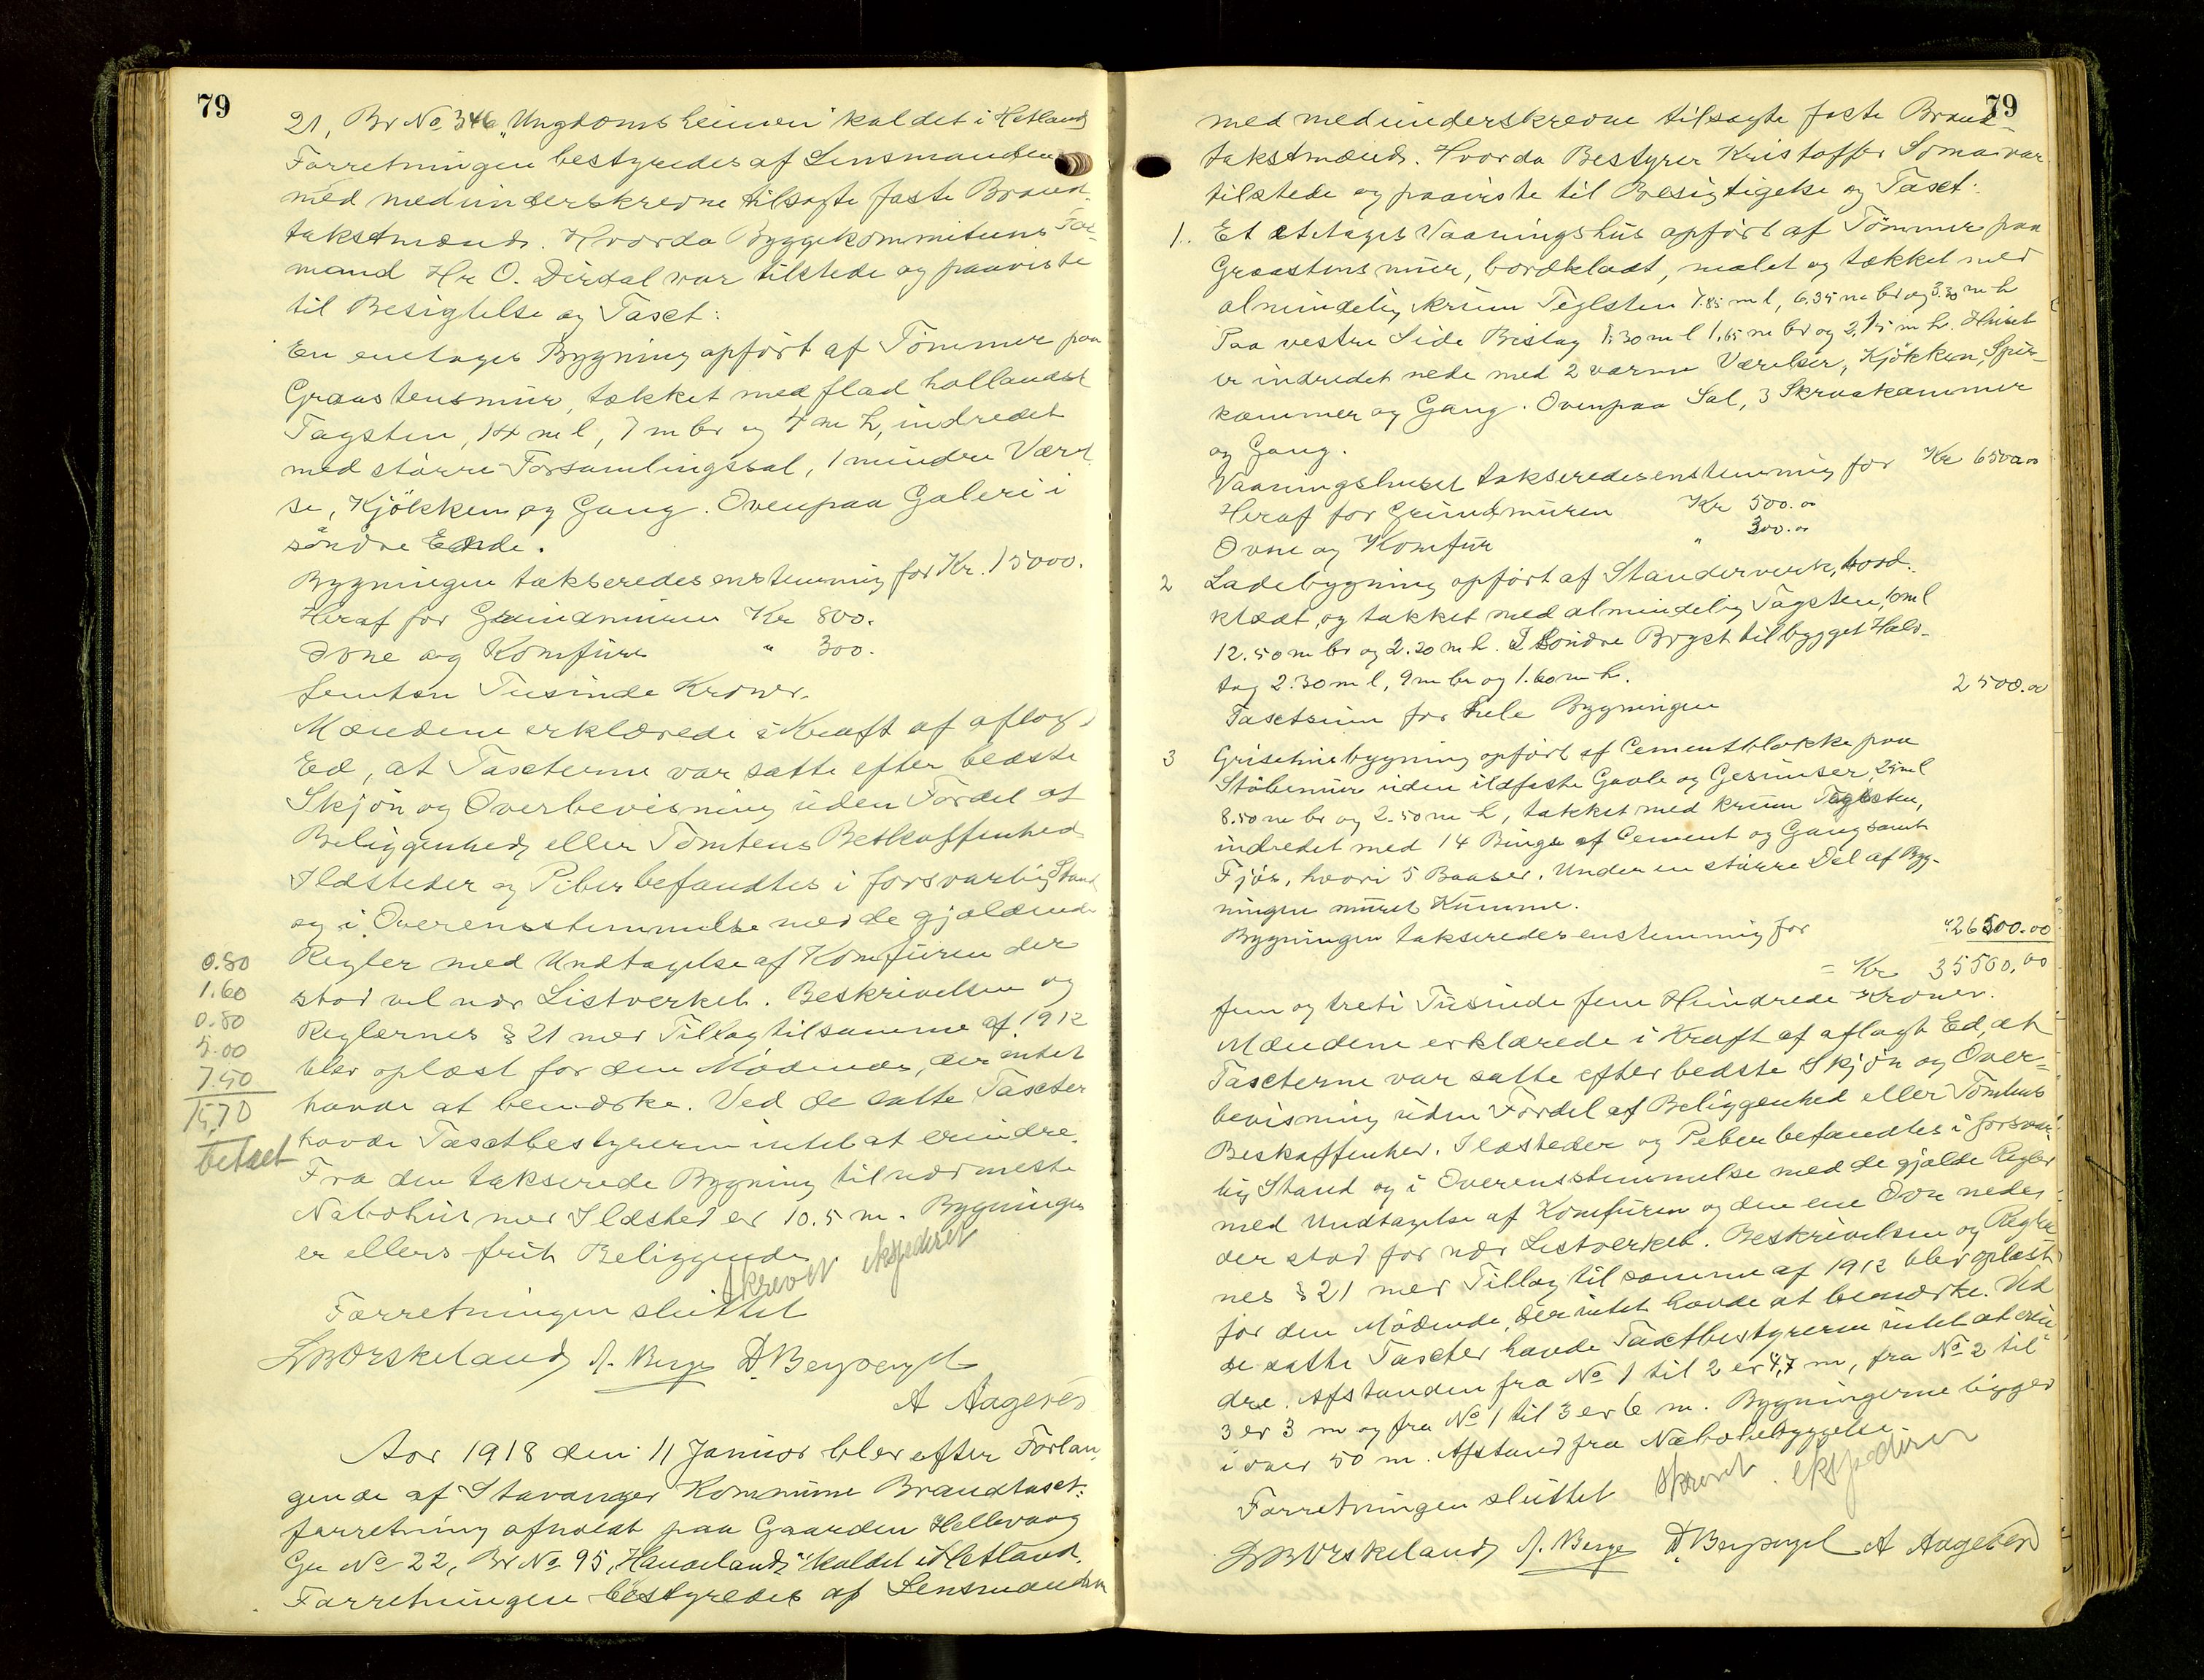 79
21, Br No 346 "Ungdomsheimen" kaldet i Hetland
Forretningen bestyredes af Lensmanden
med medunderskrevne tilsagte faste Brand-
takstmænd. Hvorda Byggekommiteens For-
mand Hr O. Dirdal var tilstede og paaviste
til Besigtelse og Taxt:
En enetages Bygning opført af Tømmer paa
Graastensmur, tækket med flad hollandsk
Tagsten, 14 m l, 7 m br og 4 m h, indredet
med større Forsamlingssal, 1 mindre Værel-
se, Kjøkken og Gang. Ovenpaa Galeri i
søndre Ende.
Bygningen takseredes enstemmig for Kr. 15000.
Heraf for Grundmuren Kr 800.
Ovne og Komfure " 300.
femten Tusinde Kroner.
Mændene erklærede i Kraft af aflagt
Ed, at Taxterne var satte efter bedste
Skjøn og Overbevisning uden Fordel af
Beliggenhed eller Tomtens Beskaffenhed
Ildsteder og Piber befandtes i forsvarlig Stand
og i Overensstemmelse med de gjældende
Regler med Undtagelse af Komfuren der
stod vel nær Listverket. Beskrivelsen og
Reglernes § 21 med Tillæg til samme af 1912
blev oplæst for den Mødende, der intet
havde at bemærke. Ved de satte Taxter
havde Taxtbestyreren intet at erindre.
Fra den takserede Bygning til nærmeste
Nabohus med Ildsted er 10.5 m. Bygningen
er ellers frit Beliggende
0.80
1.60
0.80
5.00
7.50
15,70
betalt
skrevet ekspederet
Forretningen sluttet
LBOrskeland A. Berge A. Aageves
Aar 1918 den 11 Januar blev efter Forlan-
gende af Stavanger Kommune Brandtaxt-
forretning afholdt paa Gaarden Hillevaag
Gr No 22, Br No 95, "Haugeland" kaldet i Hetland.
Forretningen bestyredes af Lensmanden
79
med medunderskrevne tilsagte faste Brand-
takstmænd. Hvorda Bestyrer Kristoffer Soma var
tilstede og paaviste til Besigtigelse og Taxt:
1. Et etetages Vaaningshus opført af Tømmer paa
Graastensmur, bordklædt, malet og tækket med
almindelig krum Teglsten 7.85 m l, 6.35 m br og 3.30 m h
Paa vestre Side Bislag 1.30 m l 1.65 m br og 2.15 m h. Huset
er indredet nede med 2 varme Værelser, Kjøkken, Spis-
kammer og Gang. Ovenpaa Sal, 3 Skraakammer
og Gang.
Vaaningshuset takseredes enstemmig for Kr 6500.00
Heraf for Grundmuren Kr 500.00
Ovne og Komfur " 300.00
2 Ladebygning opført af Standerverk, bord-
klædt, og tækket med almindelig Tagsten, 10 m l
12.50 m br og 2.20 m h. I søndre Bryst tilbygget Halv-
tag 2.30 m l, 9 m br og 1.60 m h.
Taxtsum for hele Bygningen 2500.00
3 Grisehusbygning opført af Cementblokke paa
Støbemur uden ildfaste Gavle og Gesimser, 25 m l
8.50 m br og 2.50 m h, tækket med krum Teglsten,
indredet med 14 Binge af Cement og Gang samt
Fjøs, hvori 5 Baaser. Under en større Del af Byg-
ningen muret Kumme.
Bygningen takseredes enstemmig for "26500.00
= Kr 35500,00
fem og treti Tusinde fem Hundrede Kroner.
Mændene erklærede i Kraft af aflagt Ed, at
Taxterne var satte efter bedste Skjøn og Over-
bevisning uden Fordel af Beliggenhed eller Tomtens
Beskaffenhed. Ildsteder og Piber befandtes i forsvar-
lig Stand og i Overensstemmelse med de gjælde Regler
med Undtagelse af Komfuren og den ene Ovn nede,
der stod for nær Listverket. Beskrivelsen og Regler-
nes § 21 med Tillæg til samme af 1912 blev oplæst
for den Mødende, der intet havde at bemærke. Ved
de satte Taxter havde Taxtbestyreren intet at erin-
dre. Afstanden fra No 1 til 2 er 4,7 m, fra No 2 til
3 er 3 m og fra No 1 til 3 er 6 m. Bygningerne ligger
i over 50 m. Afstand fra Nabobebyggelse.
Forretningen sluttet skrevet ekspederet
LBOrskeland A. Berge A Aageves